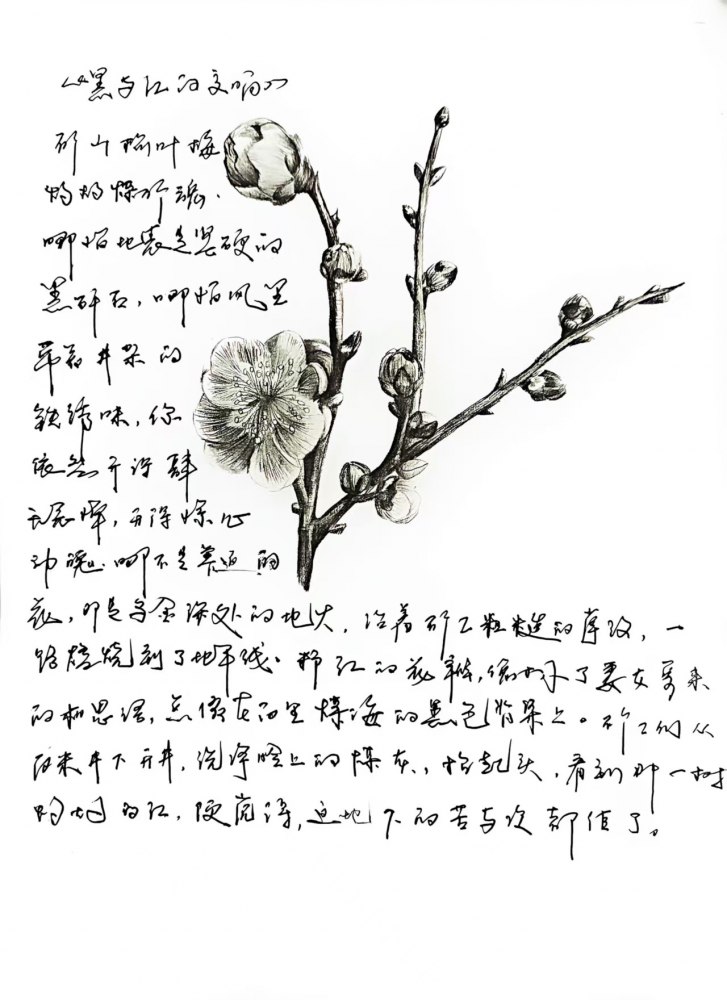 《黑与红的交响》
矿山榆叶梅
灼灼燃矿魂.
哪怕地表是坚硬的
黑矸石，哪怕风里
带着井架的
铁锈味，你
依然开得肆
无忌惮，开得惊心
动魄.哪不是普通的
花，那是乌金深处的地火，沿着矿工粗糙的掌纹，一
路燃烧到了地平线.粉红的花瓣，像极了妻女寄来
的相思语，点缀在百里煤海的黑色背景上。矿工们从
百米井下升井，洗净脸上的煤灰，抬起头，看到那一树
灼灼的红，便觉得，这地下的苦与次都值了。